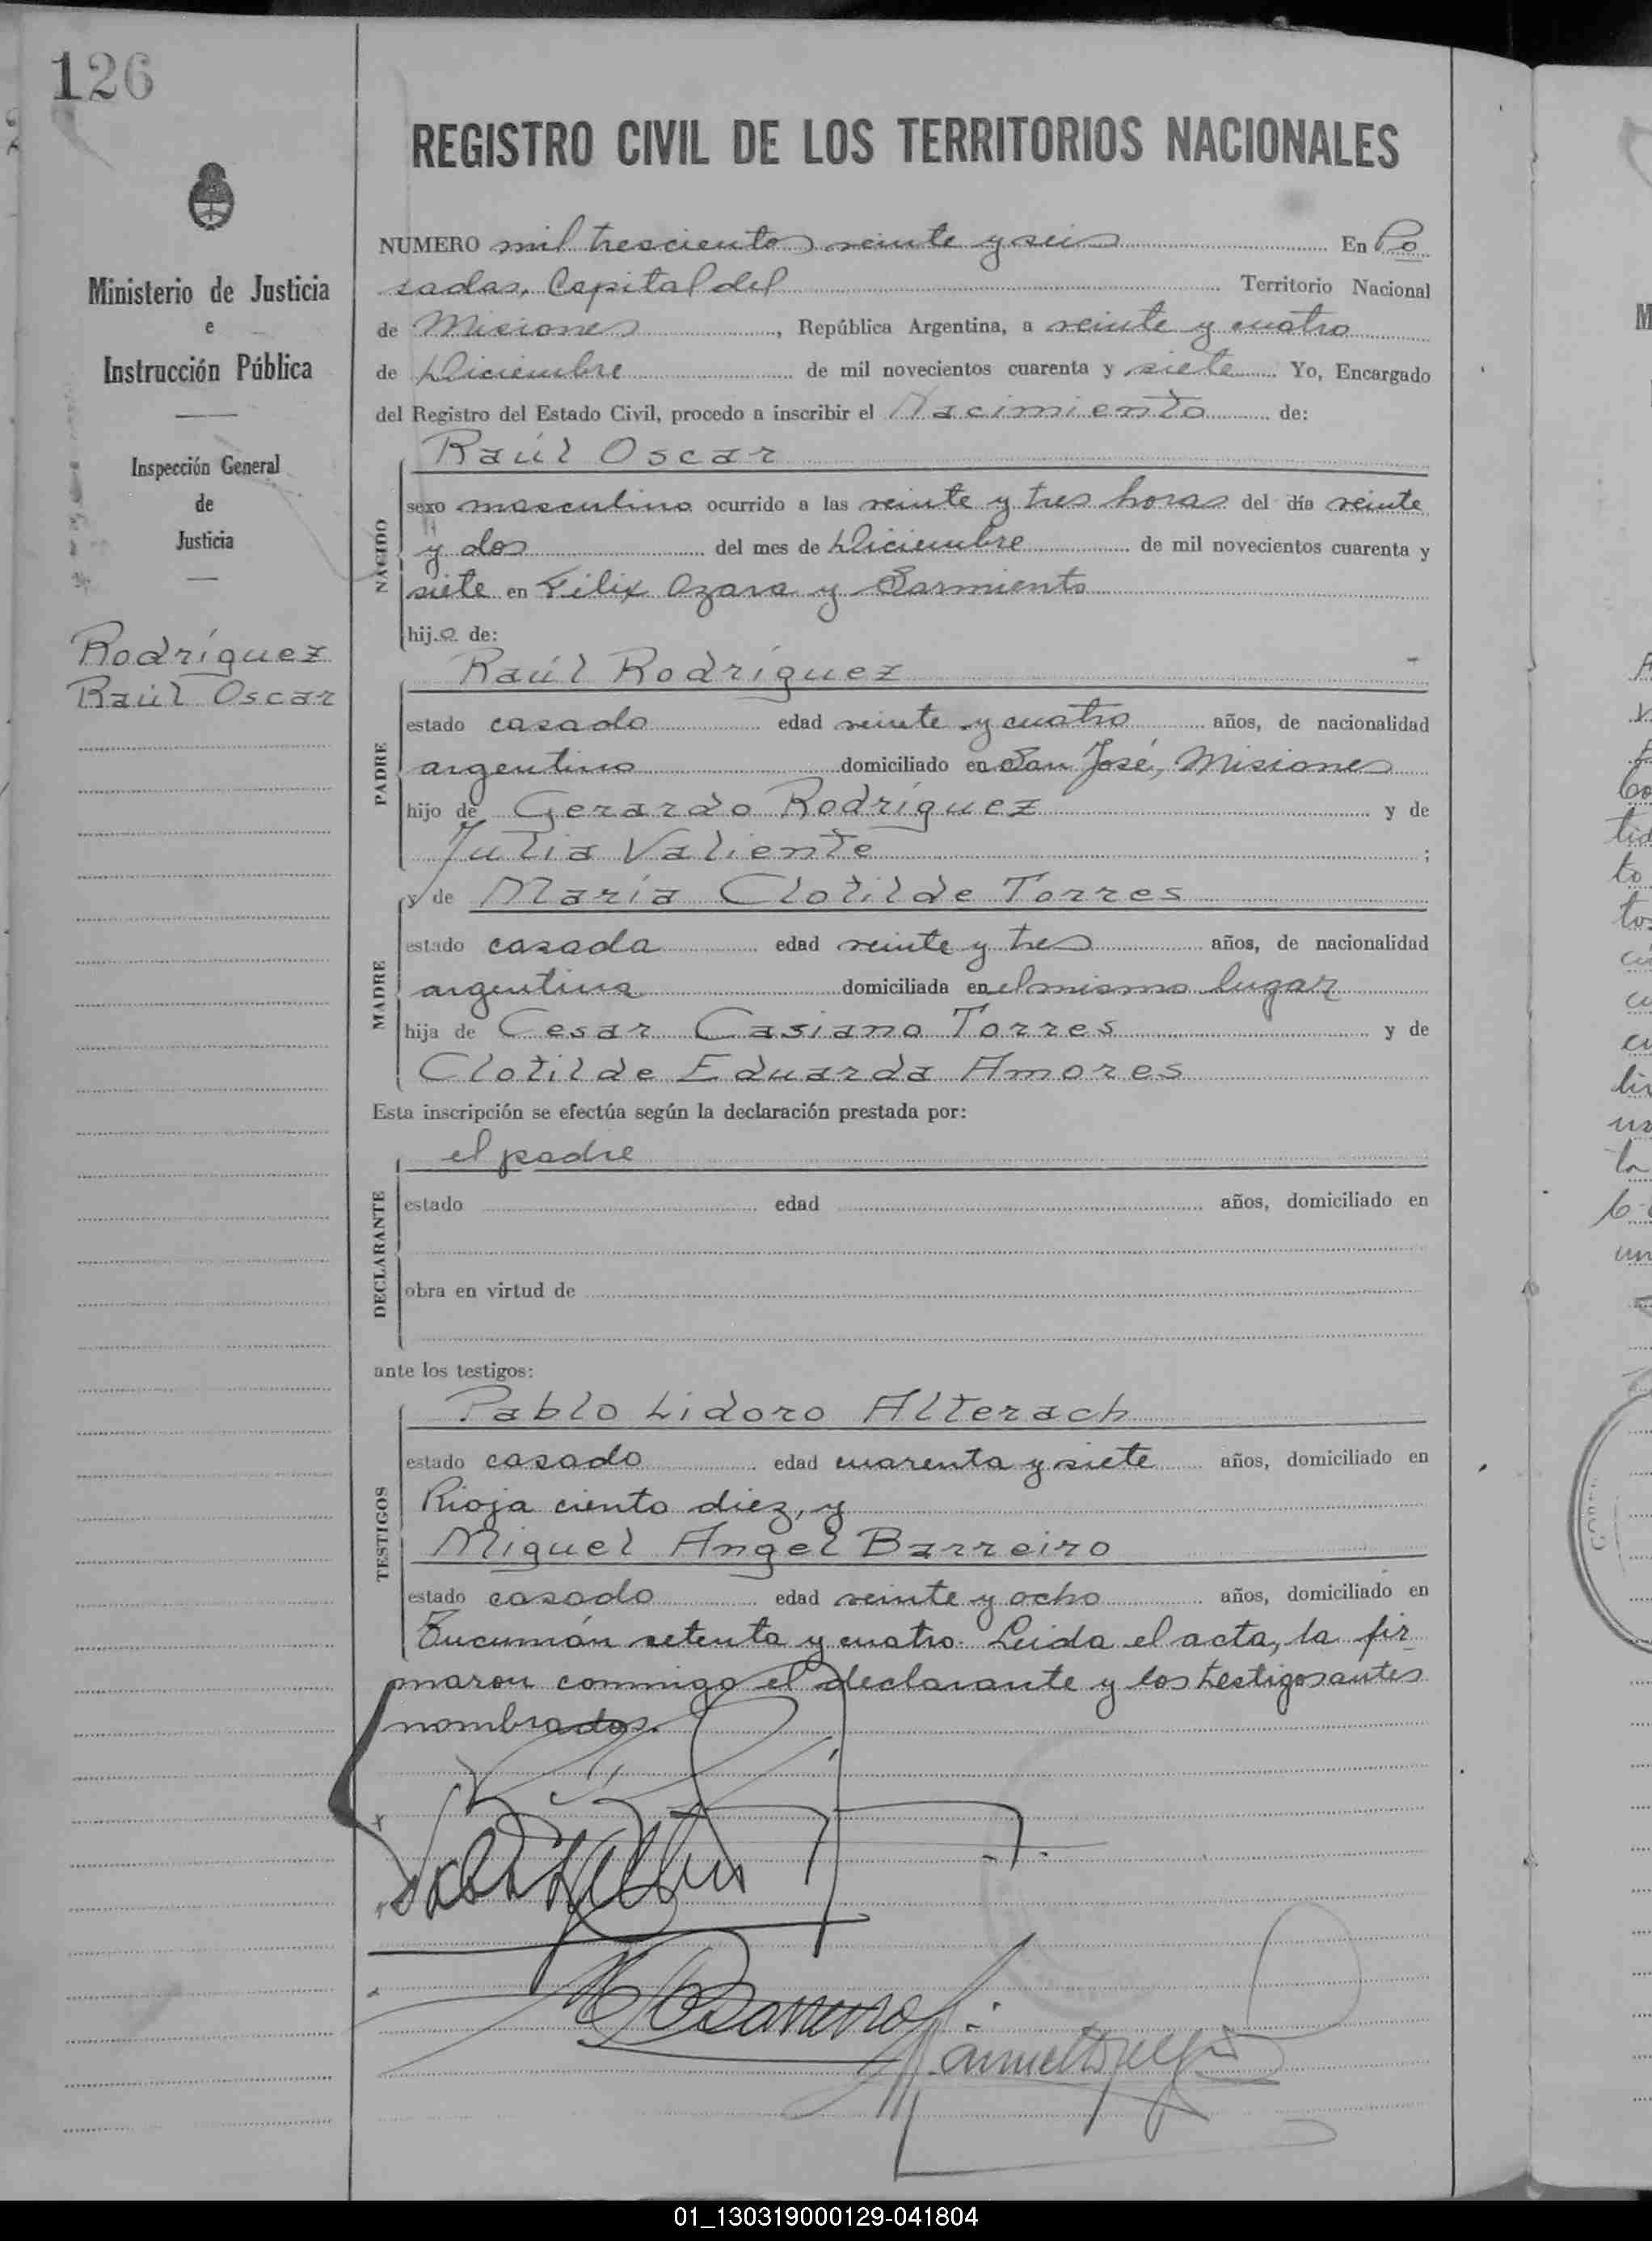 126
REGISTRO CIVIL DE LOS TERRITORIOS NACIONALES
Ministerio de Justicia
e
Instrucción Pública
Inspección General
de
Justicia
Rodríguez
Raúl Oscar
NUMERO mil trescientos veinte y seis En Po
sadas, Capital del Territorio Nacional
de Misiones, República Argentina, a veinte y cuatro
de Diciembre de mil novecientos cuarenta y siete Yo, Encargado
del Registro del Estado Civil, procedo a inscribir el Nacimiento de:
NACIDO
Raúl Oscar
sexo masculino ocurrido a las veinte y tres horas del día veinte
y dos del mes de Diciembre de mil novecientos cuarenta y
siete en Félix Azara y Sarmiento
hijo de:
PADRE
Raúl Rodríguez
estado casado edad veinte y cuatro años, de nacionalidad
argentino domiciliado en San José, Misiones
hijo de Gerardo Rodríguez y de
Julia Valiente ;
MADRE
y de María Clotilde Torres
estado casada edad veinte y tres años, de nacionalidad
argentina domiciliada en el mismo lugar
hija de Cesar Casiano Torres y de
Clotilde Eduarda Amores
Esta inscripción se efectúa según la declaración prestada por:
DECLARANTE
el padre
estado edad años, domiciliado en
obra en virtud de
ante los testigos:
TESTIGOS
Pablo Lidoro Alterach
estado casado edad cuarenta y siete años, domiciliado en
Rioja ciento diez, y
Miguel Angel Barreiro
estado casado edad veinte y ocho años, domiciliado en
Tucumán setenta y cuatro. Leida el acta, la fir
maron conmigo el declarante y los testigos antes
nombrados.
01_130319000129-041804